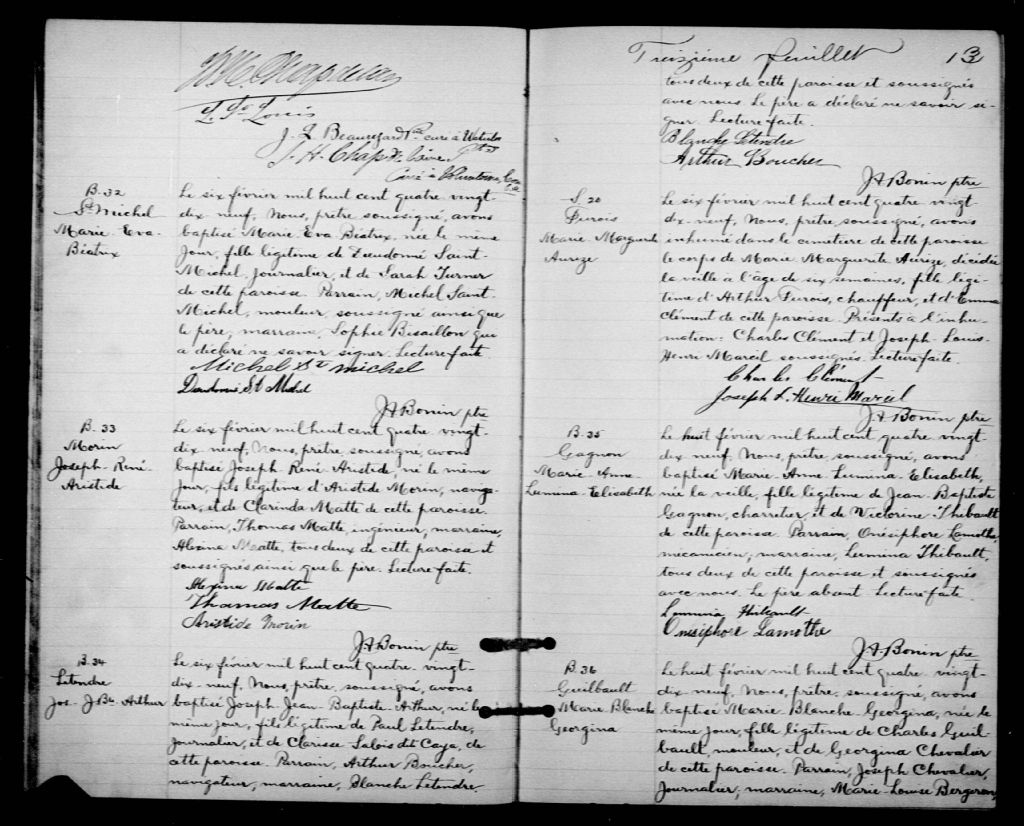 L. St Louis
J. L. Beauregard Ptre curé à Waterloo
J. H. Chap
B. 32
St Michel
Marie-Eva-
Béatrix
Le six février mil huit cent quatre vingt-
dix-neuf, Nous, prêtre soussigné, avons
baptisé Marie-Eva-Béatrix, née le même
jour, fille légitime de Dieudonné Saint-
Michel, journalier, et de Sarah Turner
de cette paroisse. Parrain, Michel Saint-
Michel, mouleur, soussigné ainsi que
le père, marraine, Sophie Bisaillon qui
a déclaré ne savoir signer. Lecture faite
Michel St michel
Deudonné St Michel
JABonin ptre
B. 33
Morin
Joseph-René-
Aristide
Le six février mil huit cent quatre-vingt-
dix-neuf, Nous, prêtre soussigné, avons
baptisé Joseph-René-Aristide, né le même
jour, fils légitime d'Aristide Morin, naviga-
teur, et de Clarinda Matte de cette paroisse.
Parrain, Thomas Matte, ingénieur, marraine,
Alexina Matte, tous deux de cette paroisse et
soussignés ainsi que le père. Lecture faite.
Alexina Matte
Thomas Matte
Aristide Morin
JABonin ptre
B. 34
Letendre
Jos. J.Bte Arthur
Le six février mil huit cent quatre-vingt-
dix-neuf, Nous, prêtre, soussigné, avons
baptisé Joseph-Jean-Baptiste-Arthur, né le
même jour, fils légitime de Paul Letendre,
journalier, et de Clarisse Salois dit Caya, de
cette paroisse. Parrain, Arthur Boucher,
navigateur, marraine, Blanche Letendre,
Treizième feuillet 13
tous deux de cette paroisse et soussignés
avec nous. Le père a déclaré ne savoir si-
gner. Lecture faite.
Blanche Letendre
Arthur Boucher
JABonin ptre
S. 20
Durois
Marie Marguerite
Aurize
Le six février mil huit cent quatre vingt-
dix-neuf, Nous, prêtre, soussigné, avons
inhumé dans le cimetière de cette paroisse
le corps de Marie Marguerite Aurize, décédée
la veille à l'âge de six semaines, fille légi-
time d'Arthur Durois, chauffeur, et d'Emma
Clément de cette paroisse. Présents à l'inhu-
mation: Charles Clément et Joseph-Louis-
Henri Marcil soussignés. Lecture faite.
Charles Clément
Joseph L. Henri Marcil
JABonin ptre
B. 35
Gagnon
Marie-Anne-
Lumina-Elisabeth
Le huit février mil huit cent quatre vingt-
dix-neuf, Nous, prêtre, soussigné, avons
baptisé Marie-Anne-Lumina-Elisabeth,
née la veille, fille légitime de Jean-Baptiste
Gagnon, charretier, et de Victorine Thibault
de cette paroisse. Parrain, Onésiphore Lamothe,
mécanicien, marraine, Lumina Thibault,
tous deux de cette paroisse et soussignés
avec nous. Le père absent. Lecture faite.
Lumina Thibault
Onésiphore Lamothe
JABonin ptre
B. 36
Guilbault
Marie Blanche
Georgina
Le huit février mil huit cent quatre-vingt-
dix-neuf, Nous, prêtre, soussigné, avons
baptisé Marie Blanche Georgina, née le
même jour, fille légitime de Charles Guil-
bault, mouleur, et de Georgina Chevalier
de cette paroisse. Parrain, Joseph Chevalier,
journalier, marraine, Marie-Louise Bergeron,